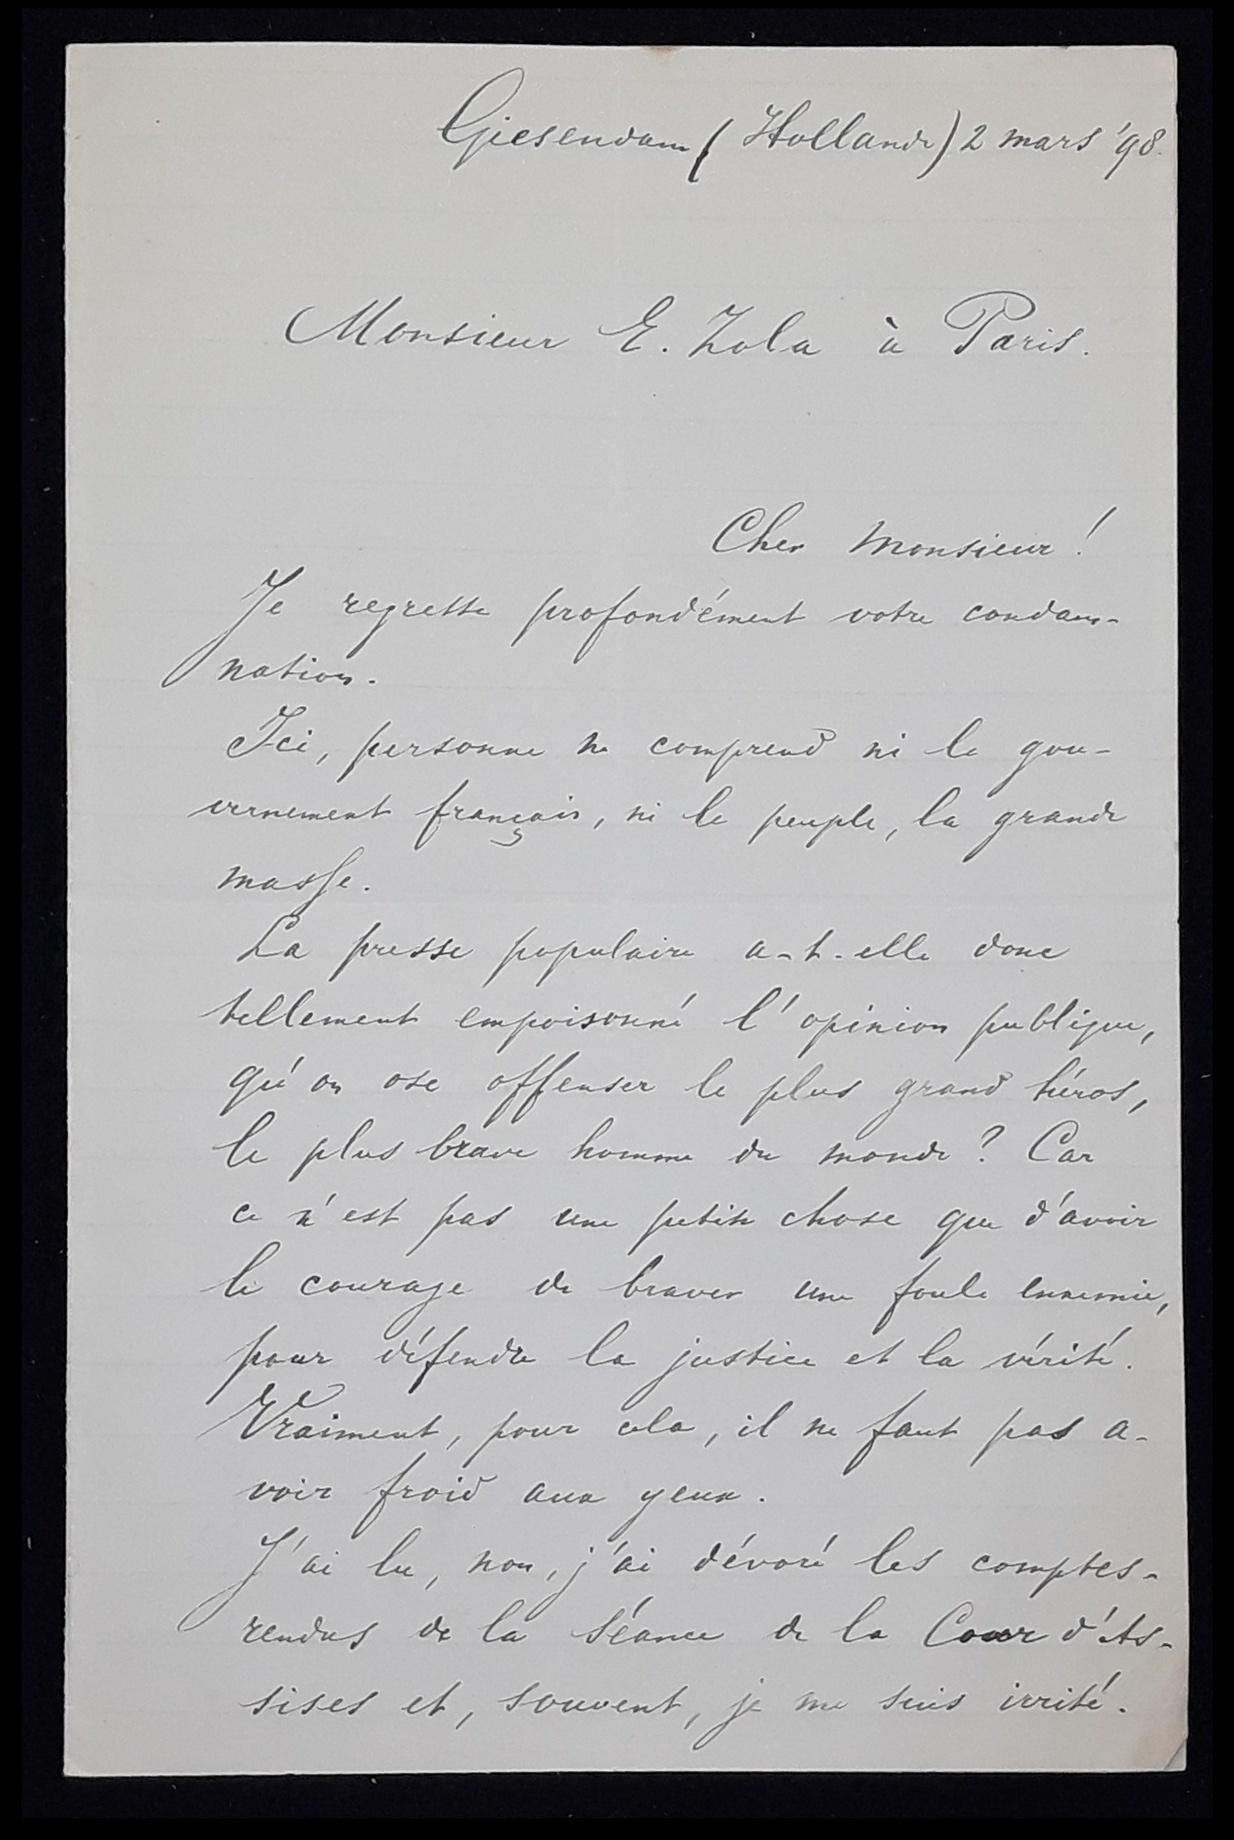 Giesendam (Hollande) 2 mars '98.
Monsieur E. Zola à Paris.
Cher Monsieur!
Je regrette profondément votre condam-
nation.
Ici, personne ne comprend ni le gou-
vernement français, ni le peuple, la grande
masse.
La presse populaire a-t-elle donc
tellement empoisonné l'opinion publique,
qu'on ose offenser le plus grand héros,
le plus brave homme du monde? Car
ce n'est pas une petite chose que d'avoir
le courage de braver une foule ennemie,
pour défendre la justice et la vérité.
Vraiment, pour cela, il ne faut pas a-
voir froid aux yeux.
J'ai lu, non, j'ai dévoré les comptes-
rendus de la séance de la Cour d'As-
sises et, souvent, je me suis irrité.